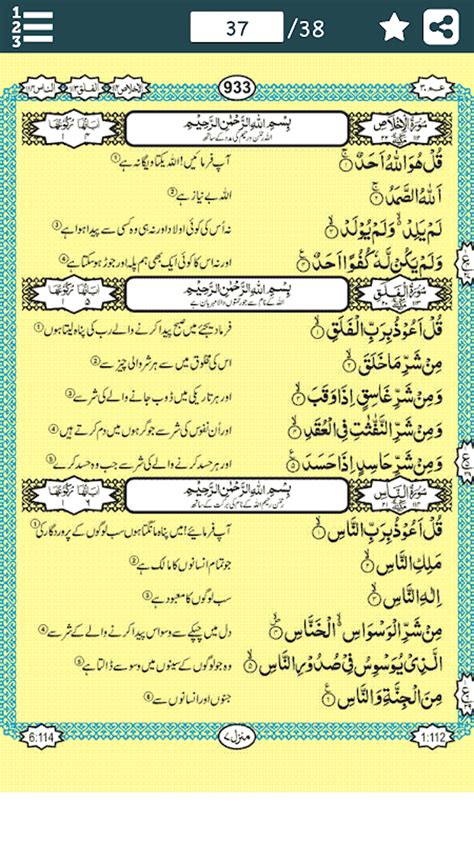 1
2
3
37 /38
عم ٣٠ 933 الاخلاص ١١٢ الفلق ١١٣ الناس ١١٤
سُوْرَةُ الْاِخْلَاصِ بِسْمِ اللهِ الرَّحْمٰنِ الرَّحِيْمِ اٰيَاتُهَا ٤ رُكُوْعُهَا ١
قُلْ هُوَ اللهُ اَحَدٌ ۝١ آپ فرمائیں! اللہ یکتا و یگانہ ہے ①
اَللهُ الصَّمَدُ ۝٢ اللہ بے نیاز ہے ②
لَمْ يَلِدْ ۙ وَلَمْ يُوْلَدْ ۝٣ نہ اُس کی کوئی اولاد اور نہ ہی وہ کسی سے پیدا ہوا ہے ③
وَلَمْ يَكُنْ لَّهٗ كُفُوًا اَحَدٌ ۝٤ اور نہ اس کا کوئی ایک بھی ہم پلہ اور جوڑ ہوسکتا ہے ④
سُوْرَةُ الْفَلَقِ بِسْمِ اللهِ الرَّحْمٰنِ الرَّحِيْمِ اٰيَاتُهَا ٥ رُكُوْعُهَا ١
قُلْ اَعُوْذُ بِرَبِّ الْفَلَقِ ۝١ فرما دیجئے میں صبح پیدا کرنے والے رب کی پناہ لیتا ہوں ①
مِنْ شَرِّ مَا خَلَقَ ۝٢ اس کی مخلوق میں سے ہر شر والی چیز سے ②
وَمِنْ شَرِّ غَاسِقٍ اِذَا وَقَبَ ۝٣ اور ہر تاریکی میں ڈوب جانے والے کی شر سے ③
وَمِنْ شَرِّ النَّفّٰثٰتِ فِى الْعُقَدِ ۝٤ اور اُن نفوس کی شر سے جو گرہوں میں دم کرتے ہیں ④
وَمِنْ شَرِّ حَاسِدٍ اِذَا حَسَدَ ۝٥ اور ہر حسد کرنے والے کی شر سے جب وہ حسد کرلے ⑤
سُوْرَةُ النَّاسِ بِسْمِ اللهِ الرَّحْمٰنِ الرَّحِيْمِ اٰيَاتُهَا ٦ رُكُوْعُهَا ١
قُلْ اَعُوْذُ بِرَبِّ النَّاسِ ۝١ آپ فرمائیے! میں پناہ مانگتا ہوں سب لوگوں کے پروردگار کی ①
مَلِكِ النَّاسِ ۝٢ جو تمام انسانوں کا مالک ہے ②
اِلٰهِ النَّاسِ ۝٣ سب لوگوں کا معبود ہے ③
مِنْ شَرِّ الْوَسْوَاسِ ۙ الْخَنَّاسِ ۝٤ دل میں چپکے سے وسواس پیدا کرنے والے کے شر سے ④
الَّذِىْ يُوَسْوِسُ فِىْ صُدُوْرِ النَّاسِ ۝٥ وہ جو لوگوں کے سینوں میں وسوسے ڈالتا ہے ⑤
مِنَ الْجِنَّةِ وَالنَّاسِ ۝٦ جنوں اور انسانوں سے ⑥
1:112 منزل ٧ 6:114